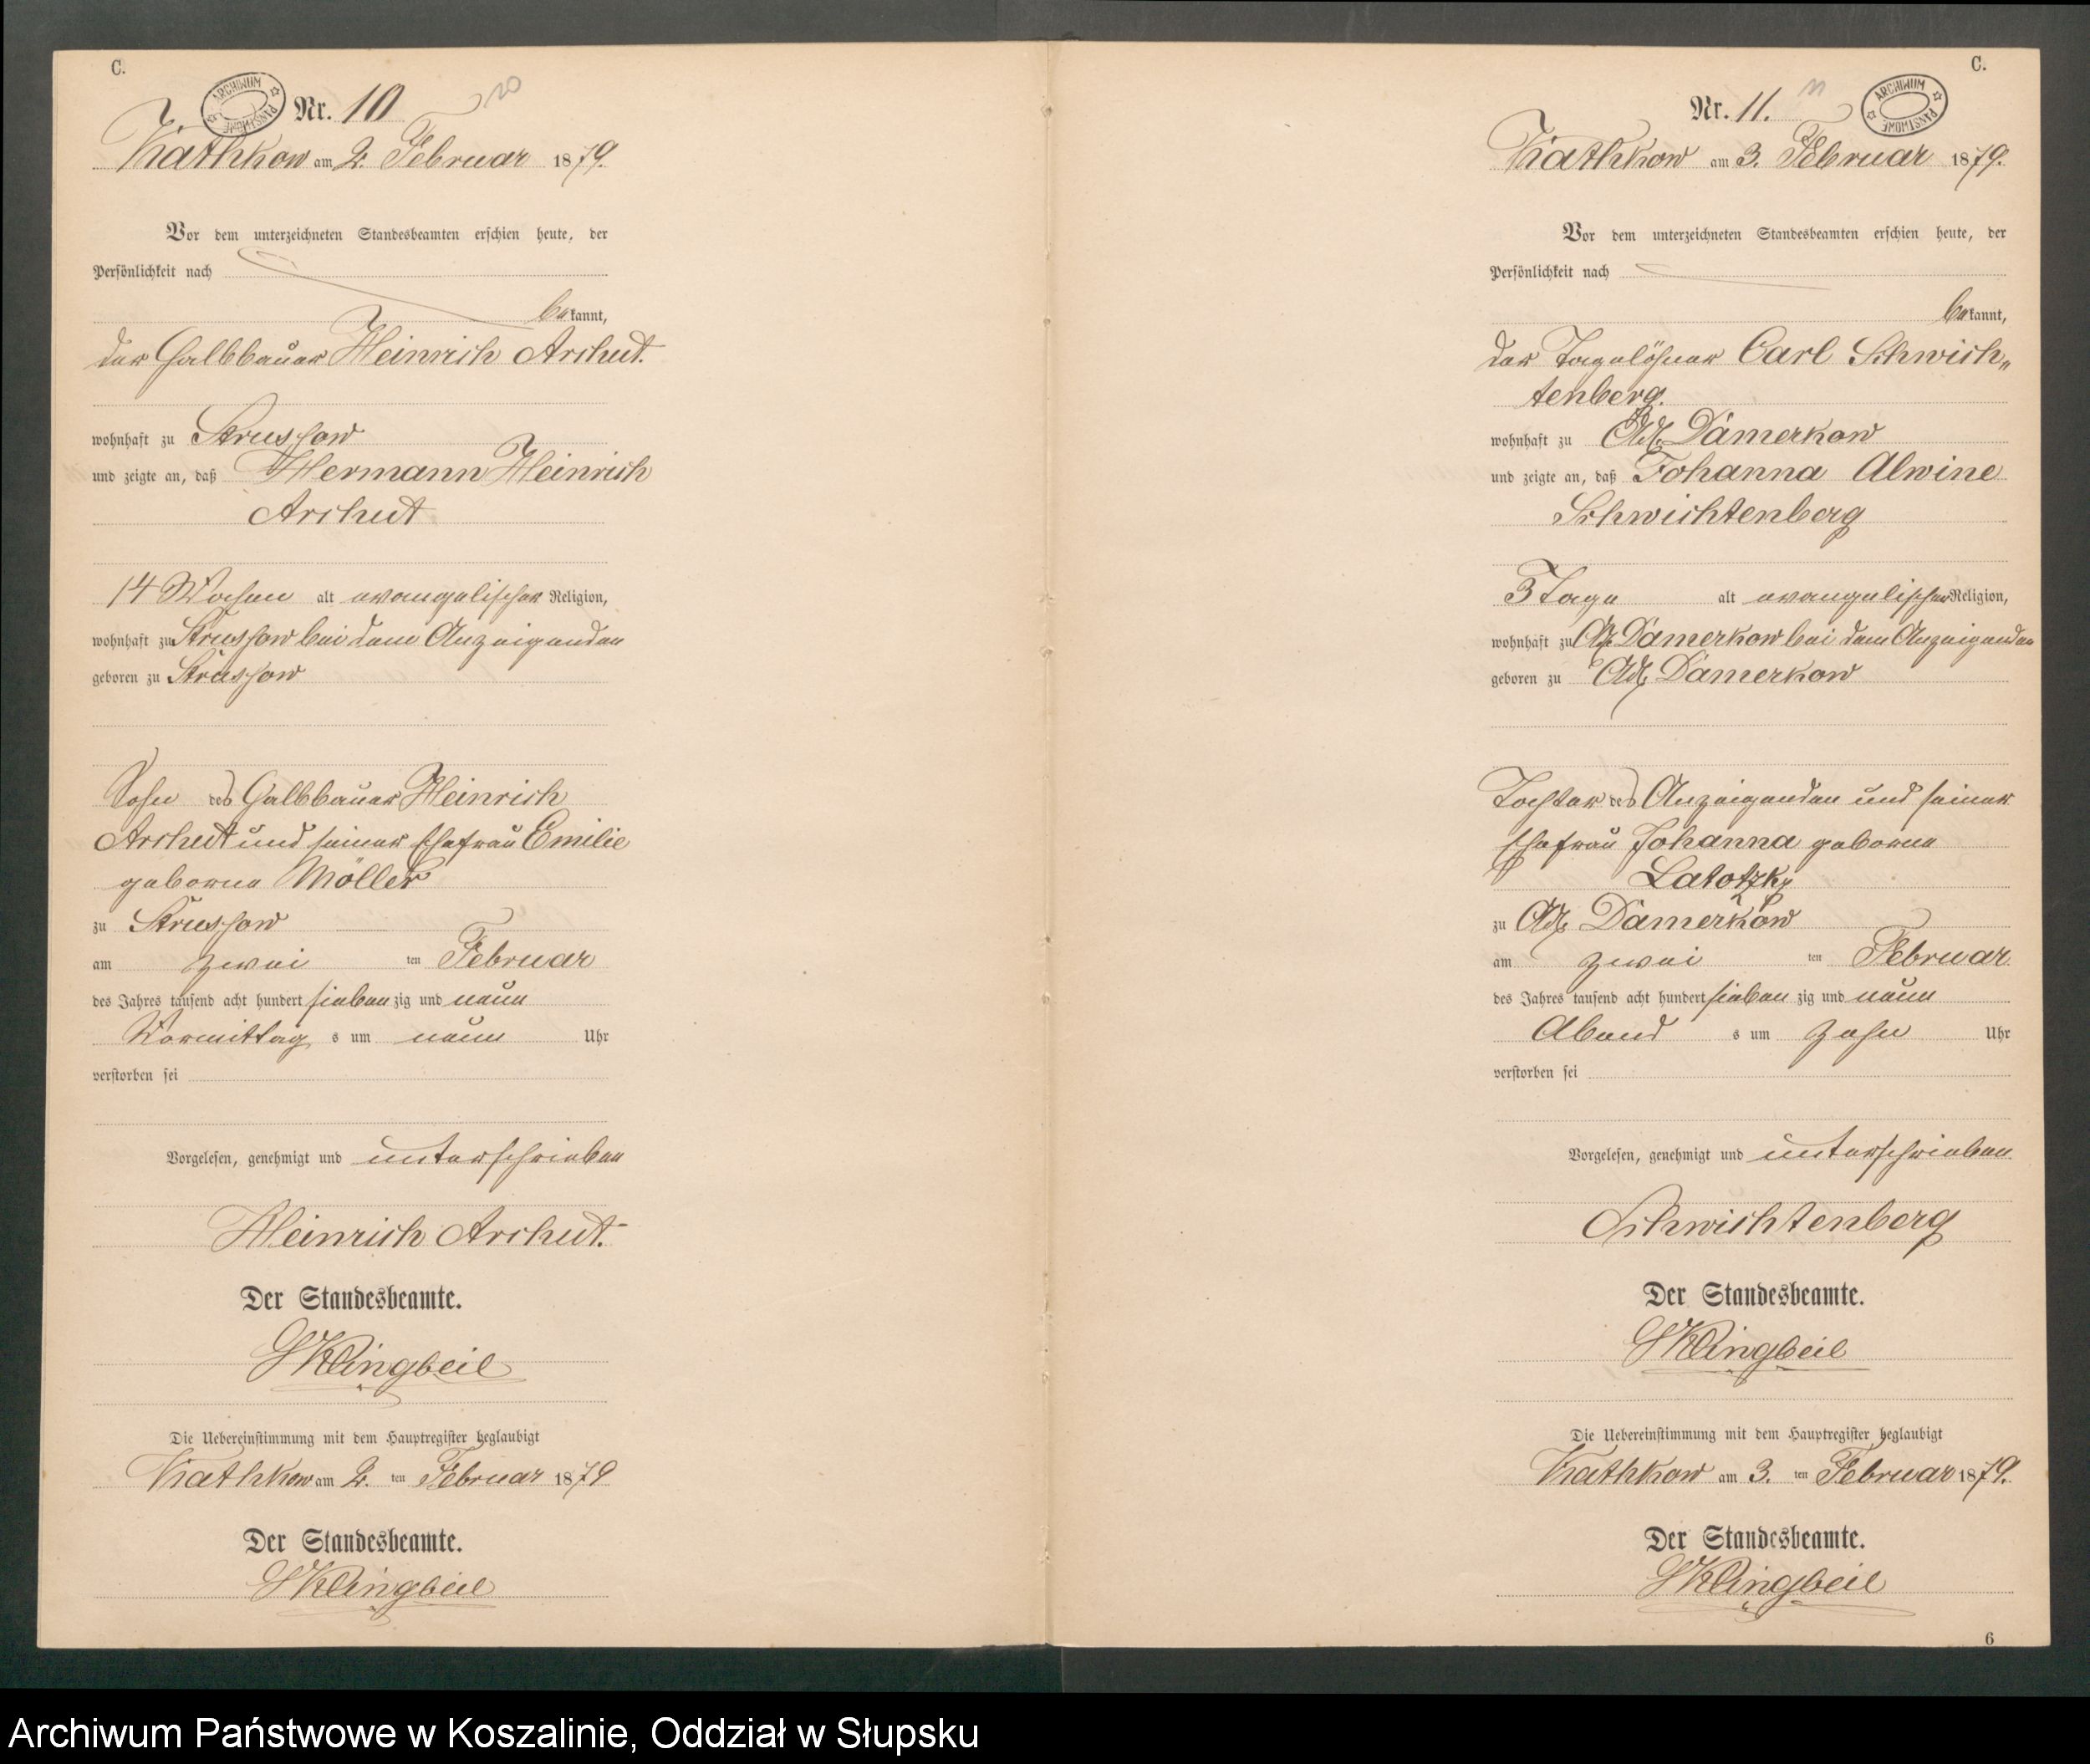 C.
ARCHIWUM PAŃSTWOWE
Nr. 10
10
Kathkow am 2. Februar 1879.
Vor dem unterzeichneten Standesbeamten erschien heute, der
Persönlichkeit nach
bekannt,
der Halbbauer Heinrich Archut.
wohnhaft zu Strussow
und zeigte an, daß Hermann Heinrich
Archut
14 Wochen alt evangelischer Religion,
wohnhaft zu Strussow bei dem Anzeigenden
geboren zu Strussow
Sohn des Halbbauer Heinrich
Archut und seiner Ehefrau Emilie
geborne Möller
zu Strussow
am zwei ten Februar
des Jahres tausend acht hundert siebenzig und neun
Vormittag s um neun Uhr
verstorben sei
Vorgelesen, genehmigt und unterschrieben
Heinrich Archut.
Der Standesbeamte.
Klingbeil
Die Uebereinstimmung mit dem Hauptregister beglaubigt
Kathkow am 2. ten Februar 1879
Der Standesbeamte.
Klingbeil
C.
ARCHIWUM PAŃSTWOWE
Nr. 11.
11
Kathkow am 3. Februar 1879.
Vor dem unterzeichneten Standesbeamten erschien heute, der
Persönlichkeit nach
bekannt,
der Tagelöhner Carl Schwich„
tenberg.
wohnhaft zu Adl. Damerkow
und zeigte an, daß Johanna Alwine
Schwichtenberg
3 Tage alt evangelischer Religion,
wohnhaft zu Adl. Damerkow bei dem Anzeigenden
geboren zu Adl. Damerkow
Tochter des Anzeigenden und seiner
Ehefrau Johanna geborne
Latotzky
zu Adl. Damerkow
am zwei ten Februar
des Jahres tausend acht hundert sieben zig und neun
Abend s um zehn Uhr
verstorben sei
Vorgelesen, genehmigt und unterschrieben.
Schwichtenberg
Der Standesbeamte.
Klingbeil
Die Uebereinstimmung mit dem Hauptregister beglaubigt
Kathkow am 3. ten Februar 1879.
Der Standesbeamte.
Klingbeil
6
Archiwum Państwowe w Koszalinie, Oddział w Słupsku